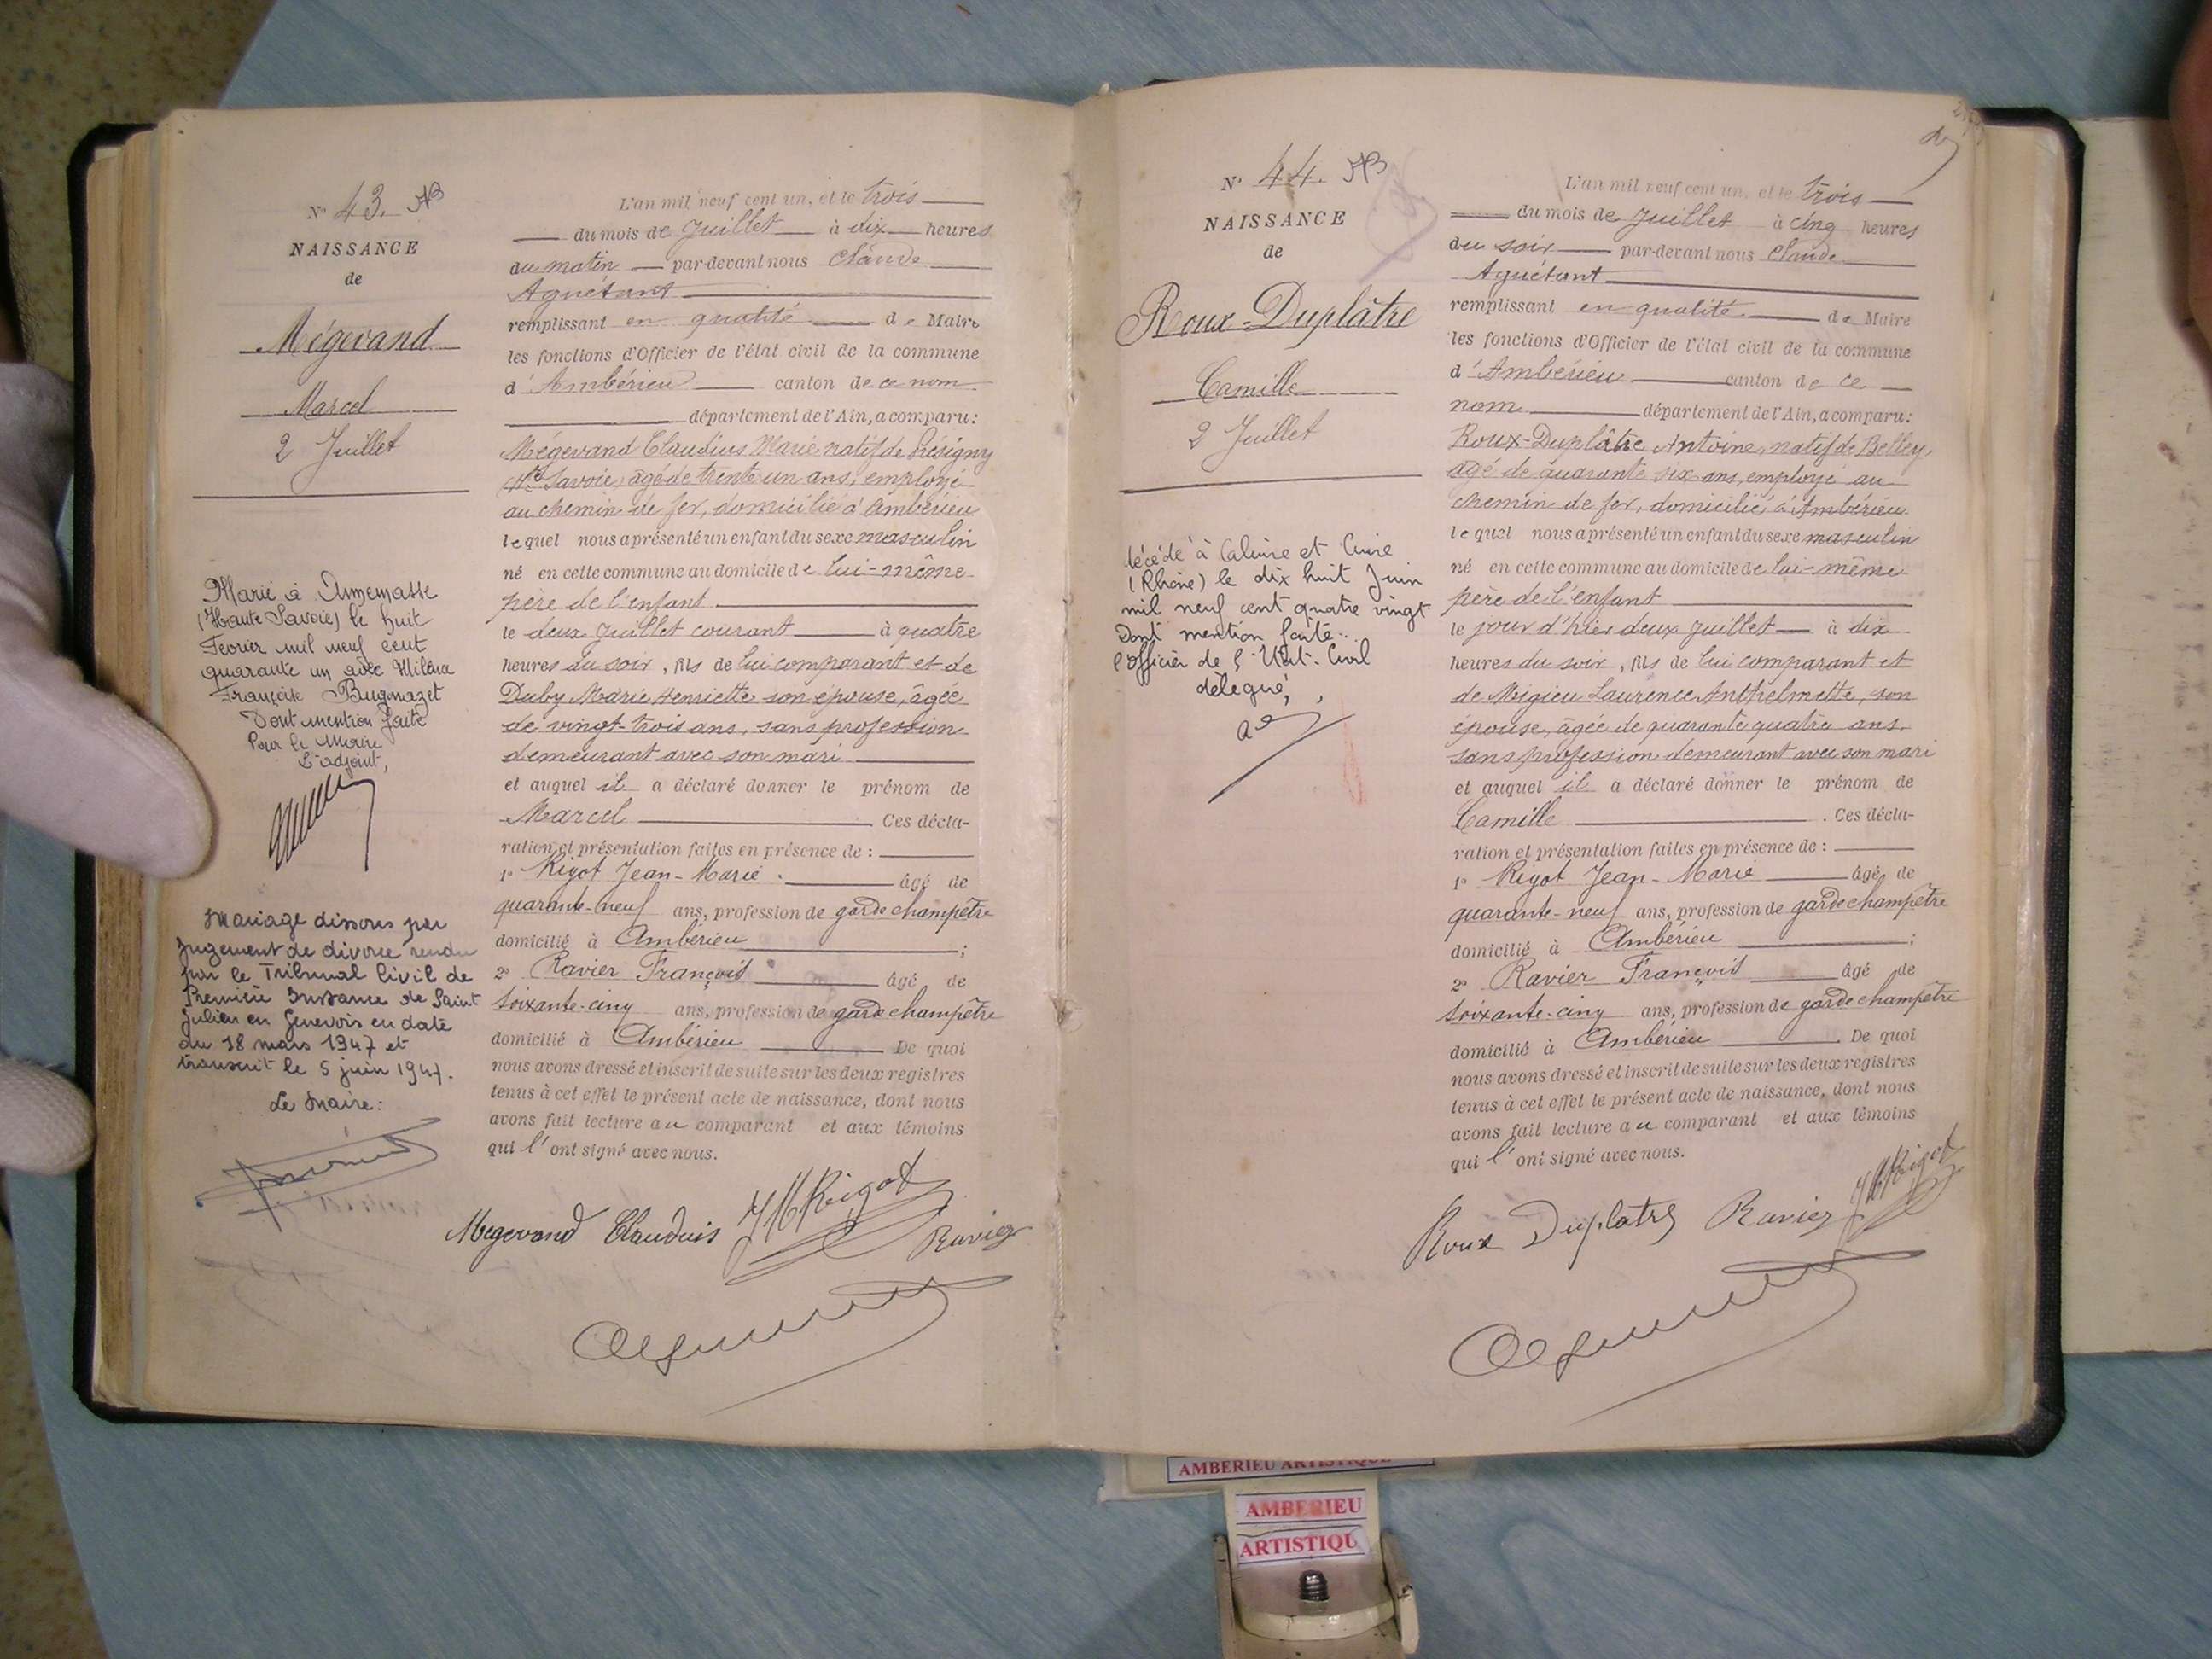 N° 43.
NAISSANCE
de
Mégevand
Marcel
2 Juillet
Marié à Annemasse
(Haute Savoie) le huit
Fevrier mil neuf cent
quarante un avec Miléna
Françoise Bugnazet
Dont mention faite
Pour le Maire
L'adjoint,
Mariage dissous par
jugement de divorce rendu
par le Tribunal Civil de
Première Instance de Saint
Julien en Genevois en date
du 18 mars 1947 et
transcrit le 5 juin 1947.
Le Maire:
L'an mil neuf cent un, et le trois
du mois de Juillet à dix heures
du matin par-devant nous Claude
Aguétant
remplissant en qualité de Maire
les fonctions d'Officier de l'état civil de la commune
d'Ambérieu canton de ce nom
département de l'Ain, a comparu:
Mégevand Claudius Marie natif de Présigny
Hte Savoie, âgé de trente un ans, employé
au chemin de fer, domicilié à Ambérieu
lequel nous a présenté un enfant du sexe masculin
né en cette commune au domicile de lui-même
père de l'enfant
le deux Juillet courant à quatre
heures du soir, fils de lui comparant et de
Duby Marie Henriette son épouse, âgée
de vingt-trois ans, sans profession
demeurant avec son mari
et auquel il a déclaré donner le prénom de
Marcel Ces décla-
ration et présentation faites en présence de :
1° Rigot Jean-Marie âgé de
quarante-neuf ans, profession de garde champêtre
domicilié à Ambérieu ;
2° Ravier François âgé de
soixante-cinq ans, profession de garde champêtre
domicilié à Ambérieu De quoi
nous avons dressé et inscrit de suite sur les deux registres
tenus à cet effet le présent acte de naissance, dont nous
avons fait lecture au comparant et aux témoins
qui l'ont signé avec nous.
Megevand Claudius JM Rigot
Ravier
N° 44.
NAISSANCE
de
Roux-Duplâtre
Camille
2 Juillet
décédé à Caluire et Cuire
(Rhône) le dix huit Juin
mil neuf cent quatre vingt
Dont mention faite..
l'officier de l'Etat-Civil
délégué,
L'an mil neuf cent un, et le trois
du mois de Juillet à cinq heures
du soir par-devant nous Claude
Aguétant
remplissant en qualité de Maire
les fonctions d'Officier de l'état civil de la commune
d'Ambérieu canton de ce
nom département de l'Ain, a comparu:
Roux-Duplâtre Antoine, natif de Belley,
âgé de quarante six ans, employé au
chemin de fer, domicilié à Ambérieu
lequel nous a présenté un enfant du sexe masculin
né en cette commune au domicile de lui-même
père de l'enfant
le jour d'hier deux Juillet à dix
heures du soir, fils de lui comparant et
de Migieu Laurence Anthelmette, son
épouse, âgée de quarante quatre ans.
sans profession demeurant avec son mari
et auquel il a déclaré donner le prénom de
Camille . Ces décla-
ration et présentation faites en présence de :
1° Rigot Jean-Marie âgé de
quarante-neuf ans, profession de garde champêtre
domicilié à Ambérieu ;
2° Ravier François âgé de
soixante-cinq ans, profession de garde champêtre
domicilié à Ambérieu . De quoi
nous avons dressé et inscrit de suite sur les deux registres
tenus à cet effet le présent acte de naissance, dont nous
avons fait lecture au comparant et aux témoins
qui l'ont signé avec nous.
Roux Duplatre Ravier JM Rigot
AMBERIEU ARTISTIQUE
AMBERIEU
ARTISTIQU